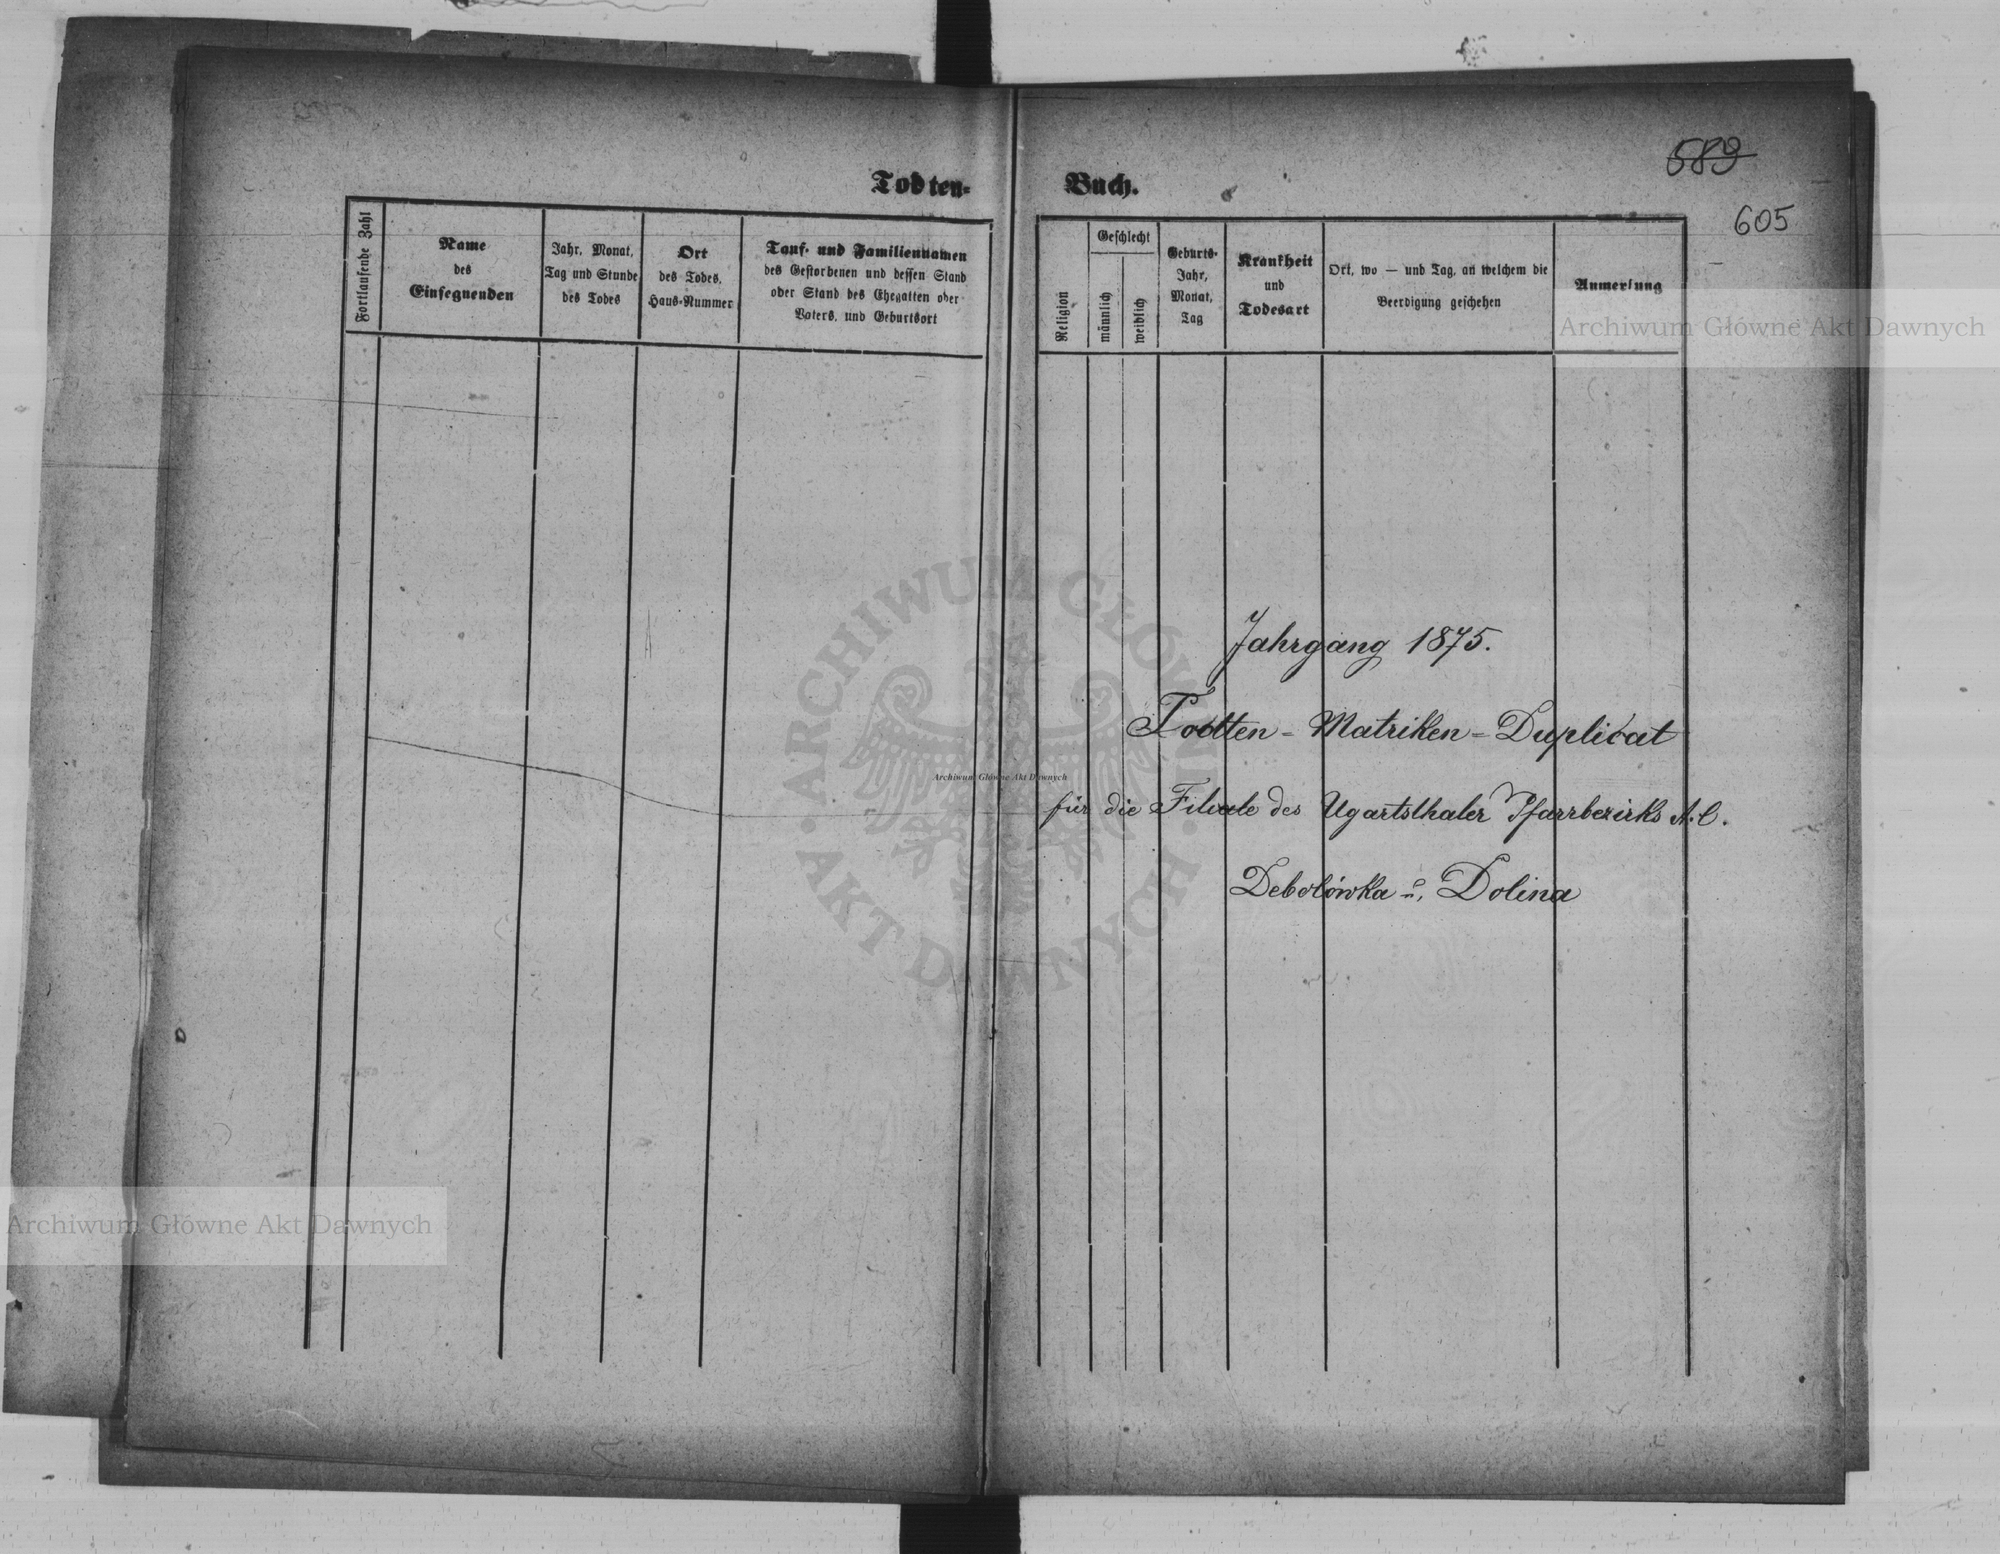 Todten-
Buch.
589
605
Fortlaufende Zahl
Name
des
Einsegnenden
Jahr, Monat,
Tag und Stunde
des Todes
Ort
des Todes,
Haus-Nummer
Tauf- und Familiennamen
des Gestorbenen und dessen Stand
oder Stand des Ehegatten oder
Vaters, und Geburtsort
Religion
Geschlecht
männlich
weiblich
Geburts-
Jahr,
Monat,
Tag
Krankheit
und
Todesart
Ort, wo — und Tag, an welchem die
Beerdigung geschehen
Anmerkung
Archiwum Główne Akt Dawnych
Jahrgang 1875.
Todten - Matriken - Duplicat
für die Filiale des Ugartsthaler Pfarrbezirks A. C.
Debolówka u. Dolina
ARCHIWUM GŁÓWNE AKT DAWNYCH
Archiwum Główne Akt Dawnych
Archiwum Główne Akt Dawnych